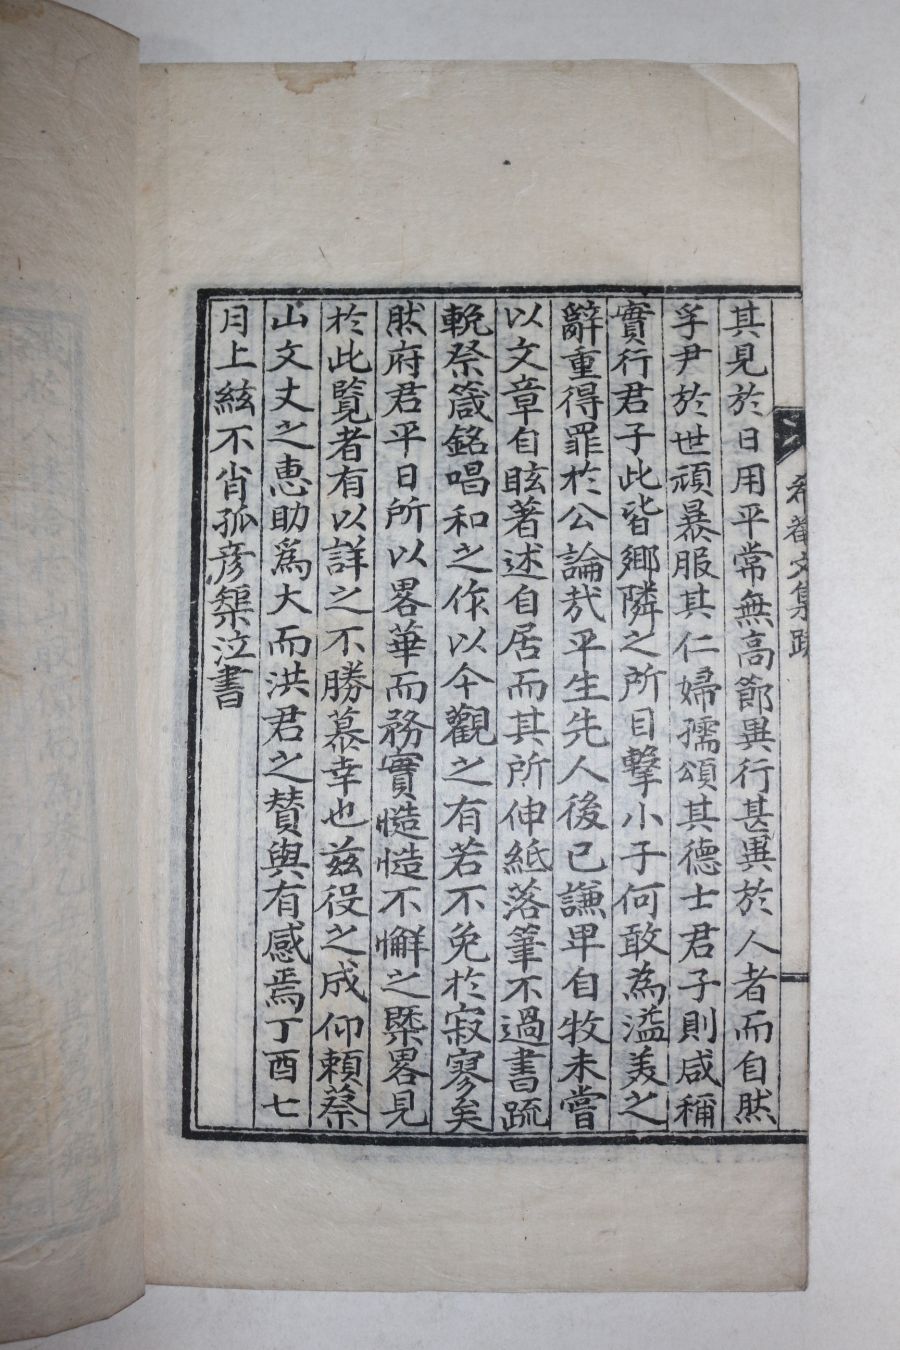 希菴文集跋
其見於日用平常無高節異行甚異於人者而自然
孚尹於世頑暴服其仁婦孺頌其德士君子則咸稱
實行君子此皆鄕隣之所目擊小子何敢為溢美之
辭重得罪於公論㢤平生先人後己謙卑自牧未嘗
以文章自眩著述自居而其所伸紙落筆不過書疏
輓祭箴銘唱和之作以今觀之有若不免於寂寥矣
然府君平日所以畧華而務實慥慥不懈之槩畧見
於此覽者有以詳之不勝慕幸也玆役之成仰賴蔡
山文丈之惠助爲大而洪君之贊與有感焉丁酉七
月上絃不肖孤彦榘泣書